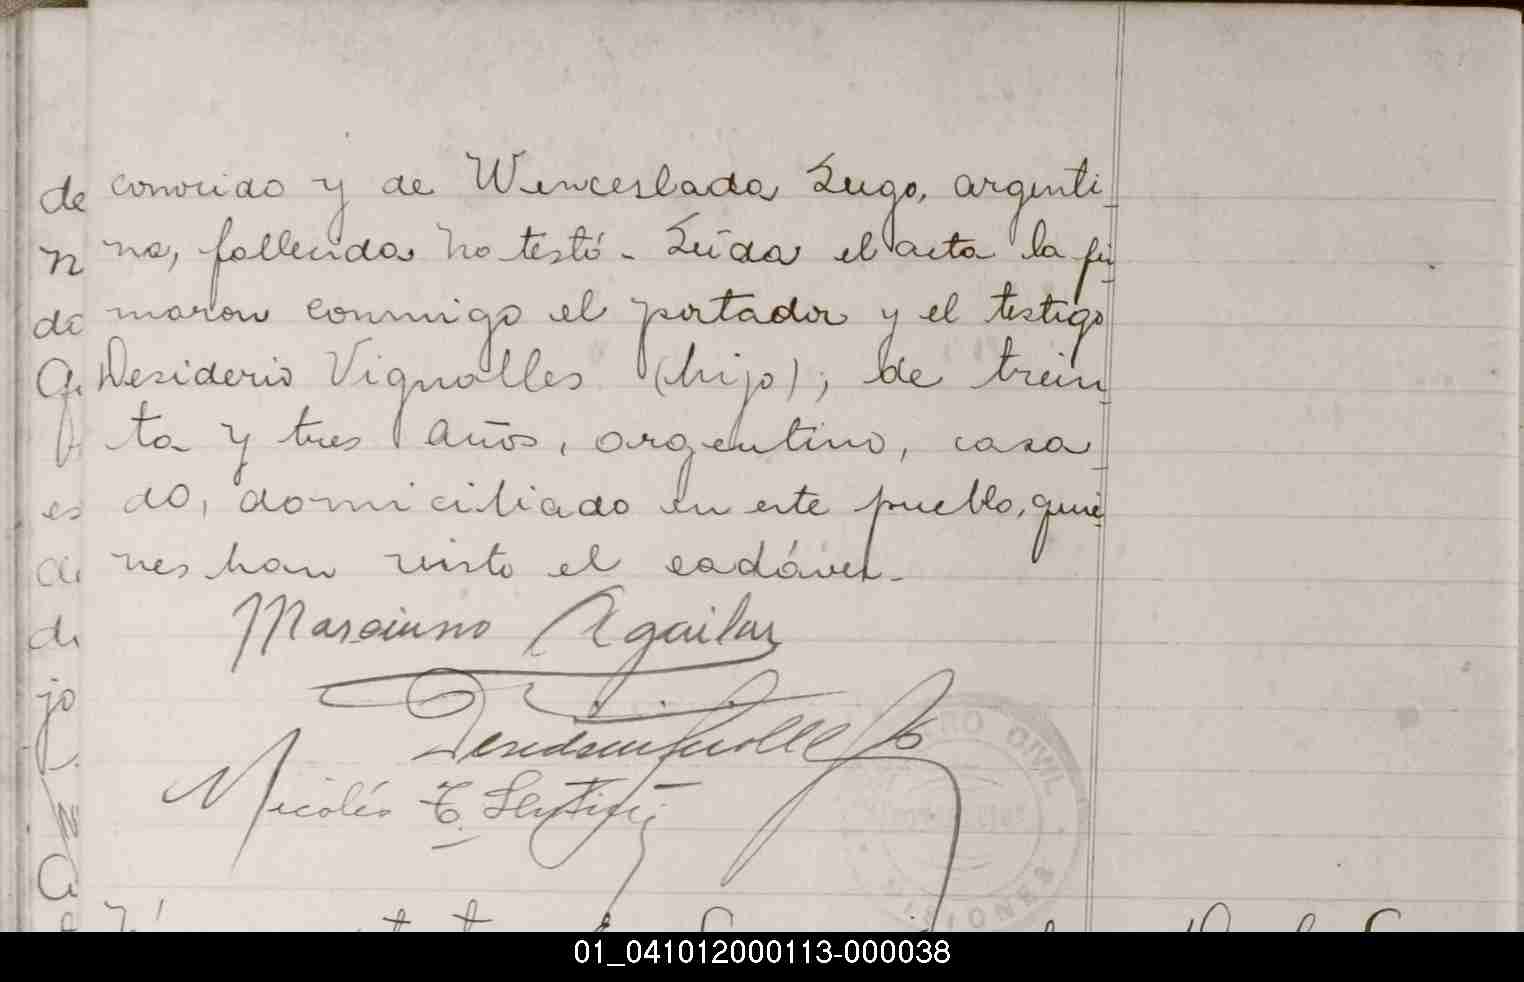 de conocido y de Wenceslada Lugo, argenti-
na, fallecida No testó - Leída el acta la fir-
maron conmigo el portador y el testigo
Desiderio Vignolles (hijo), de trein-
ta y tres años, argentino, casa-
do, domiciliado en este pueblo, quie-
nes han visto el cadáver.-
Marciano Aguilar
Nicolás
REGISTRO CIVIL
MISIONES
01_041012000113-000038